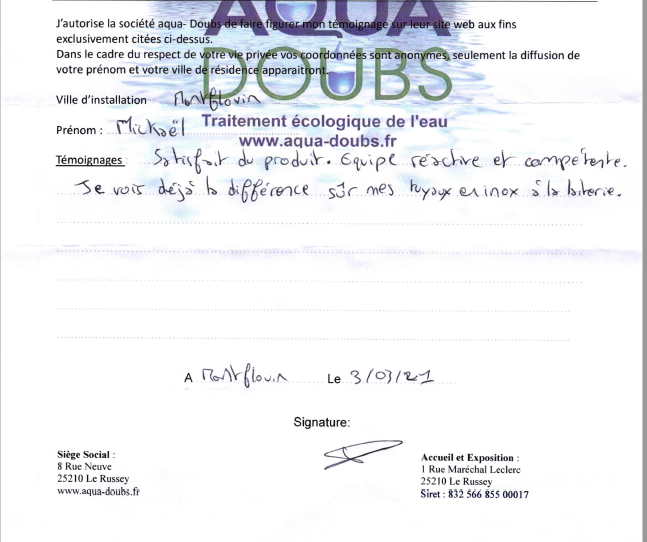 AQUA
DOUBS
J'autorise la société aqua- Doubs de faire figurer mon témoignage sur leur site web aux fins
exclusivement citées ci-dessus.
Dans le cadre du respect de votre vie privée vos coordonnées sont anonymes, seulement la diffusion de
votre prénom et votre ville de résidence apparaitront.
Ville d'installation Montflovin
Prénom : Mickaël
Traitement écologique de l'eau
www.aqua-doubs.fr
Témoignages : Satisfait du produit. Equipe réactive et compétente.
Je vois déjà la différence sur mes tuyaux en inox à la laiterie.
A Montflovin Le 3/03/21
Signature:
Siège Social :
8 Rue Neuve
25210 Le Russey
www.aqua-doubs.fr
Accueil et Exposition :
1 Rue Maréchal Leclerc
25210 Le Russey
Siret : 832 566 855 00017